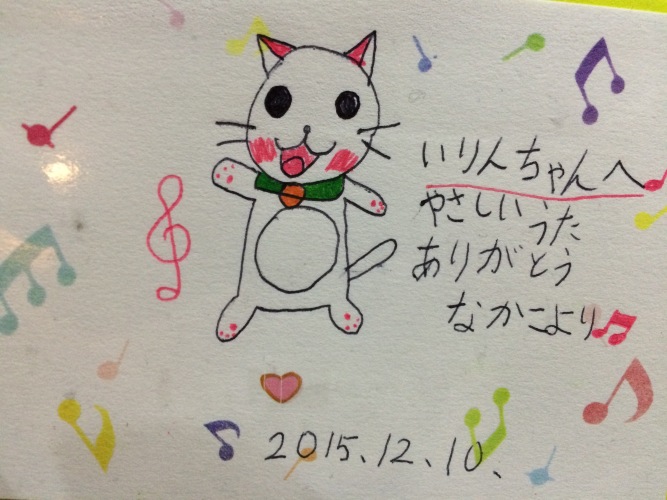 いりんちゃんへ
やさしいうた
ありがとう
なかこより
2015.12.10.